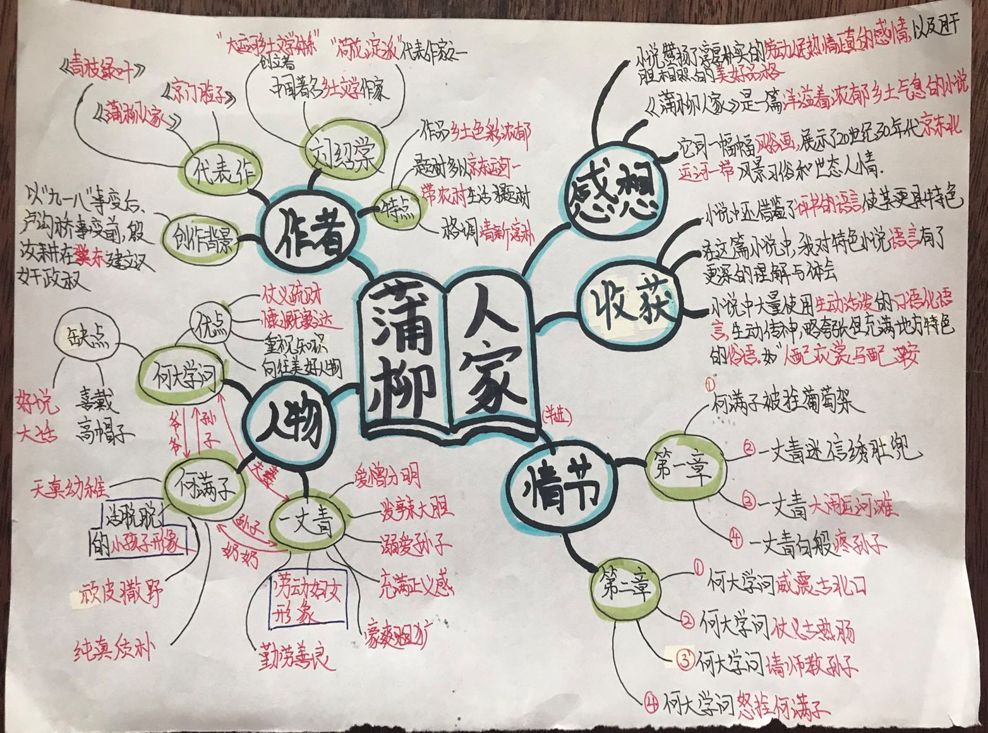 蒲柳
人家
作者
刘绍棠
"大运河乡土文学体系"
创立者
"荷花淀派"代表作家之一
中国著名乡土文学作家
代表作
《青枝绿叶》
《京门脸子》
《蒲柳人家》
特点
作品乡土色彩浓郁
题材多以京东运河一
带农村生活为题材
格调清新淳朴
创作背景
以"九一八"事变后、
卢沟桥事变前,殷
汝耕在冀东建立汉
奸政权
人物
何大学问
优点
仗义疏财
慷慨豁达
重视知识
向往美好人物
缺点
好说
大话
喜戴
高帽子
爷爷
孙子
夫妻
何满子
天真幼稚
活脱脱
的小孩子形象
顽皮撒野
纯真质朴
孙子
奶奶
一丈青
爱憎分明
泼辣大胆
溺爱孙子
充满正义感
豪爽粗犷
劳动妇女
形象
勤劳善良
感想
小说赞扬了京东朴实的劳动人民热情正直的感情,以及肝
胆相照的美好品格
《蒲柳人家》是一篇洋溢着浓郁乡土气息的小说
它同一幅幅风俗画,展示了20世纪30年代京东北
运河一带风景习俗和世态人情.
收获
小说中还借鉴了评书的语言使其更具特色
在这篇小说中,我对特色小说语言有了
更深的理解与体会
小说中大量使用生动活泼的口语化语
言,生动传神,略夸张但充满地方特色
的俗语.如"人配衣裳马配鞍
情节
第一章
①何满子被拴葡萄架
②一丈青迷信绣肚兜
③一丈青大闹运河滩
④一丈青百般疼孙子
第二章
①何大学问威震古北口
②何大学问仗义古热肠
③何大学问请师教孙子
④何大学问怒拴何满子